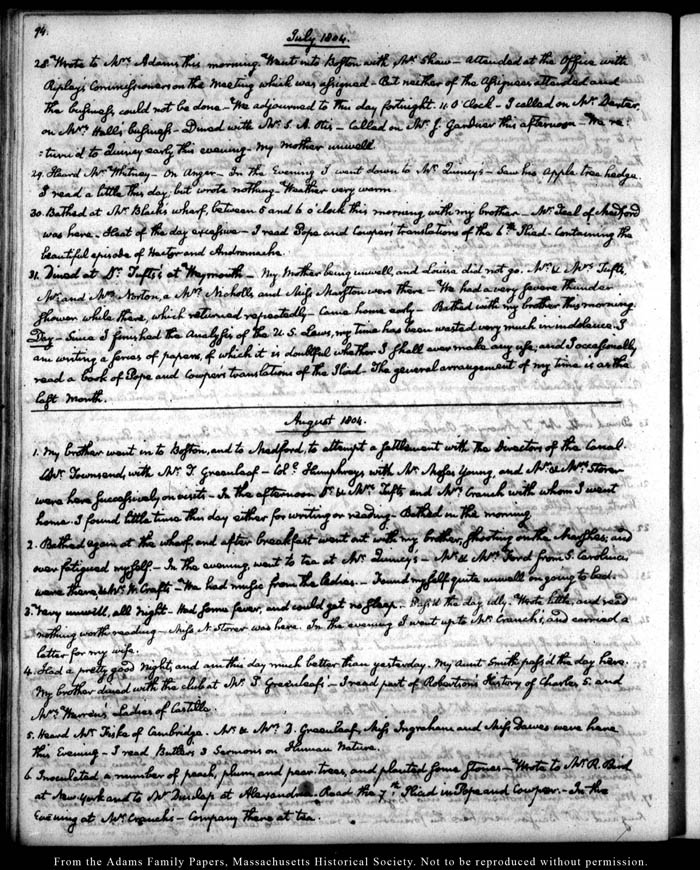 94.
July 1804.
28. Wrote to Mrs. Adams this morning. Went into Boston with Mr. Shaw — Attended at the Office with
Ripley's Commissioners on the Meeting which was assigned — But neither of the Assignees attended and
the business could not be done — We adjourned to this day fortnight. 11 O'Clock — I called on Mr. Dexter,
on Mrs. Hall's business — Dined with Mr. S. A. Otis — Called on Mr. J. Gardner this afternoon — We re-
:turn'd to Quincy early this evening — My mother unwell.
29. Heard Mr. Whitney — On Anger — In the Evening I went down to Mr. Quincy's — Saw his Apple tree hedge.
I read a little this day, but wrote nothing — Weather very warm.
30. Bathed at Mr. Black's wharf, between 5 and 6 o'clock this morning, with my brother — Mr. Teal of Medford
was here. Heat of the day excessive — I read Pope and Cowper's translations of the 6th. Iliad — Containing the
beautiful episode of Hector and Andromache.
31. Dined at Dr. Tufts's at Weymouth — My Mother being unwell, and Louisa did not go. Mr. & Mrs. Tufts,
Mr. and Mrs. Norton, a Mrs. Nicholls and Miss Marston were there — We had a very severe thunder
shower while there, which returned repeatedly — Came home early — Bathed with my brother this morning.
Day — Since I finished the Analysis of the U.S. Laws, my time has been wasted very much in indolence. I
am writing a series of papers, of which it is doubtful whether I shall ever make any use, and I occasionally
read a book of Pope and Cowper's translations of the Iliad. The general arrangement of my time is as the
last Month.
August 1804.
1. My brother went in to Boston, and to Medford, to attempt a settlement with the Directors of the Canal.
Mr. Townsend, with Mr. T. Greenleaf — Coll. Humphreys with Mr. Moses Young, and Mr. & Mrs. Storer
were here successively, on visits — In the afternoon Dr. & Mrs. Tufts and Mrs. Cranch with whom I went
home. I found little time this day either for writing or reading. Bathed in the morning.
2. Bathed again at the wharf, and after breakfast went out with my brother, shooting on the Marshes, and
over fatigued myself — In the evening, went to tea at Mr. Quincy's — Mr. & Mrs. Ford from S. Carolina
were there, & Mr. W. Crafts — We had music from the ladies — I found myself quite unwell on going to bed.
3. Very unwell, all night — Had some fever, and could get no sleep — Pass'd the day idly. Wrote little, and read
nothing worth reading — Miss A. Storer was here. In the evening I went up to Mr. Cranch's, and carried a
letter for my wife.
4. Had a pretty good night, and am this day much better than yesterday. My Aunt Smith pass'd the day here.
My brother dined with the club at Mr. T. Greenleaf's — I read part of Robertson's History of Charles 5. and
Mrs. Warren's Ladies of Castille.
5. Heard Mr. Fiske of Cambridge. Mr. & Mrs. D. Greenleaf, Miss Ingraham and Miss Dawes were here
this Evening — I read Butler's 3 Sermons on Human Nature.
6. Inoculated a number of peach, plum, and pear trees, and planted some stones — Wrote to Mr. R. Bird
at New York and to Mr. Dunlap at Alexandria. Read the 7th. Iliad in Pope and Cowper — In the
Evening at Mr. Cranch's — Company there at tea.
From the Adams Family Papers, Massachusetts Historical Society. Not to be reproduced without permission.